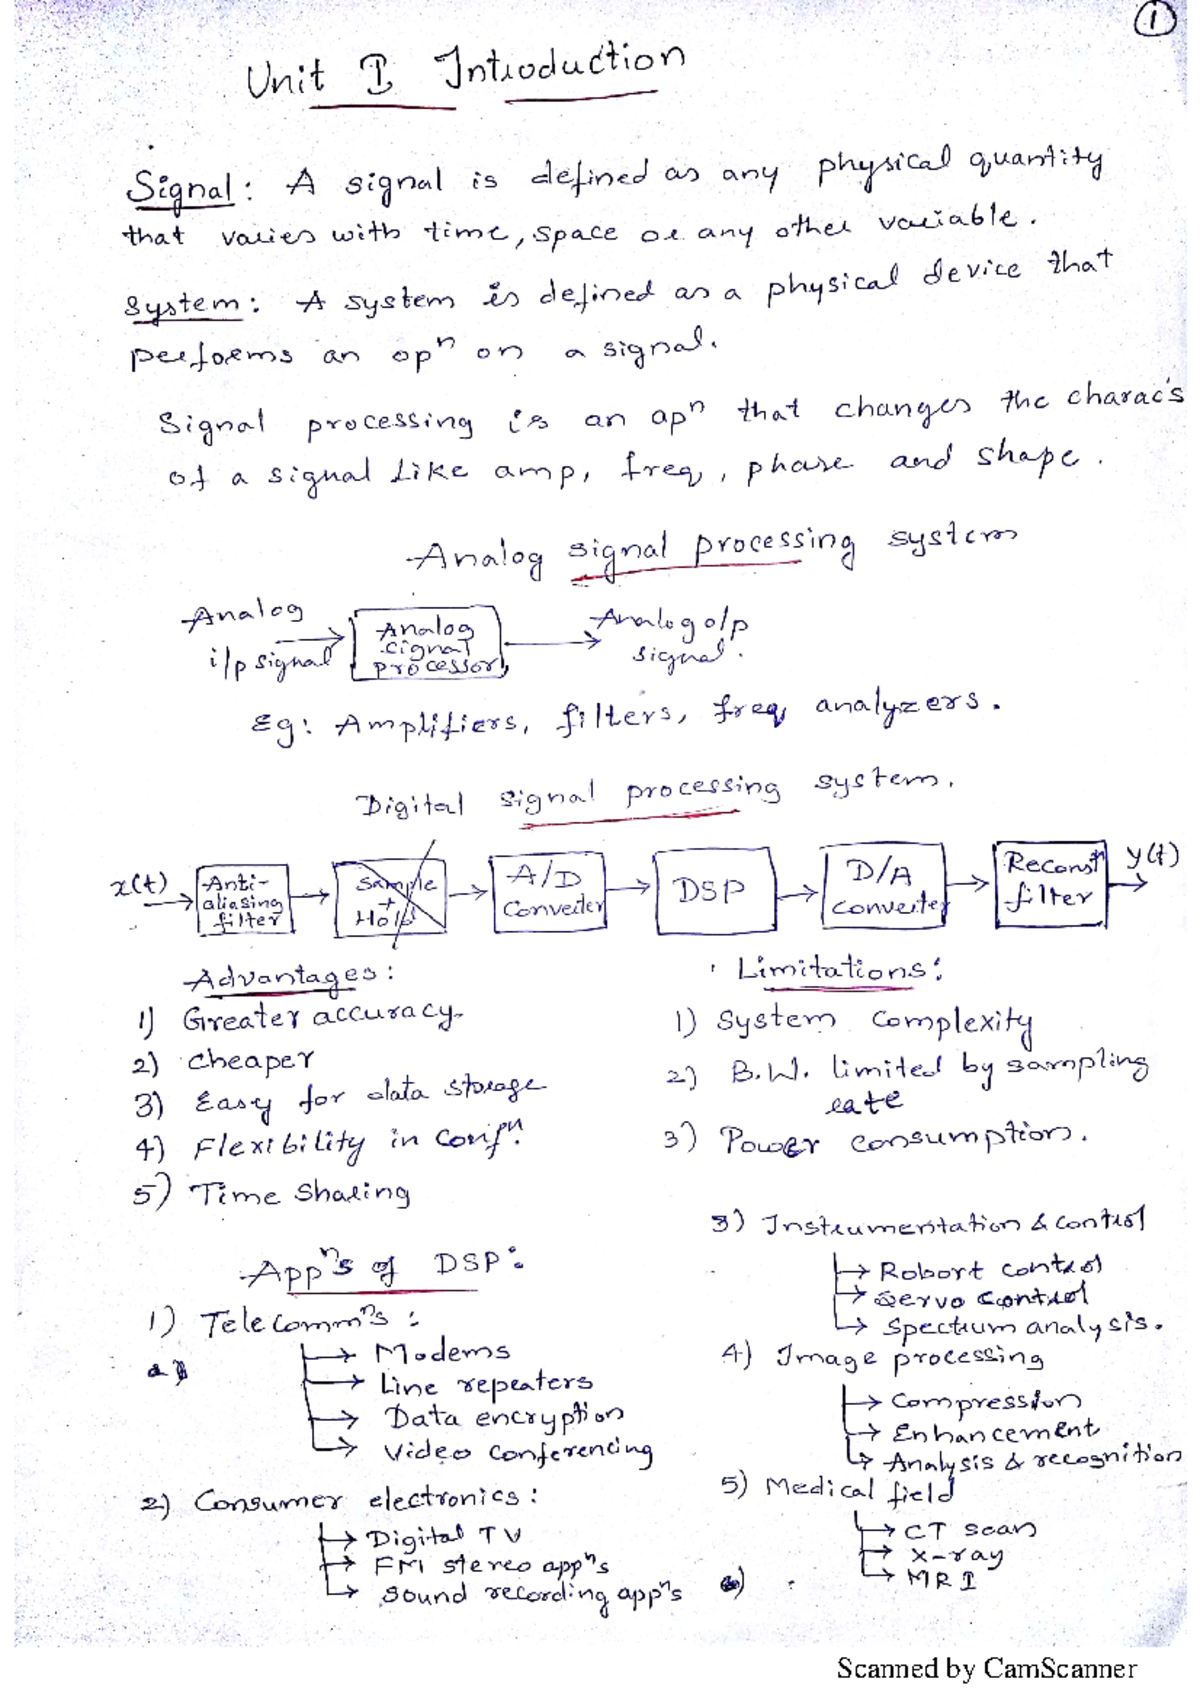 1
Unit I Introduction
Signal: A signal is defined as any physical quantity
that varies with time, space or any other variable.
System: A system is defined as a physical device that
performs an opn on a signal.
Signal processing is an opn that changes the charac's
of a signal like amp, freq, phase and shape.
Analog signal processing system
Analog
i/p signal
Analog
signal
processor
Analog o/p
signal.
Eg: Amplifiers, filters, freq analyzers.
Digital signal processing system.
x(t)
Anti-
aliasing
filter
Sample
+
Hold
A/D
Converter
DSP
D/A
converter
Reconstn
filter
y(t)
Advantages:
1) Greater accuracy.
2) cheaper
3) Easy for data storage
4) Flexibility in confn.
5) Time Sharing
Limitations:
1) System complexity
2) B.W. limited by sampling
rate
3) Power consumption.
Appn's of DSP:
1) Telecommn's:
Modems
Line repeaters
Data encryption
Video conferencing
2) Consumer electronics:
Digital TV
FM stereo appn's
Sound recording appn's
3) Instrumentation & control
Robort control
Servo control
Spectrum analysis.
4) Image processing
Compression
Enhancement
Analysis & recognition
5) Medical field
CT scan
X-ray
MRI
Scanned by CamScanner